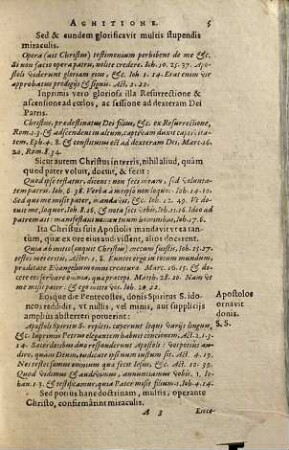 AGNITIONE. 5
Sed & eundem glorificavit multis stupendis
miraculis.
Opera (ait Christus) testimonium perhibent de me &c.
Si non facio opera patris, nolite credere. Ioh. 10. 25. 37. Apo-
stoli viderunt gloriam eius, &c. Ioh. 1. 14. Erat enim vir
approbatus prodigijs & signis. Act. 2. 22.
Inprimis vero gloriosa illa Resurrectione &
ascensione ad coelos, ac sessione ad dexteram Dei
Patris.
Christus, praedestinatus Dei filius, &c. ex Resurrectione,
Rom. 1. 3. & adscendens in altum, captivam duxit captivita-
tem. Eph. 4. 8. & constitutus est ad dexteram Dei. Marc. 16.
20. Rom. 8. 34.
Sicut autem Christus in terris, nihil aliud, quàm
quod pater voluit, docuit, & fecit:
Quod ipse testatur, dicens: non feci meam, sed volunta-
tem patris. Ioh. 6. 38. Verba à meipso non loquor. Ioh. 14. 10.
Sed qui me misit pater, mandavit, &c. Ioh. 12. 49. Vt do-
cuit me, loquor, Ioh. 8. 16, & nota feci vobis. Ioh. 15. 15. Ideo ad
patrem ait: manifestavi tuum nomen hominibus, Ioh. 17. 6.
Ita Christus suis Apostolis mandavit ut ea tan-
tum, quæ ex ore eius audivissent, alios docerent.
Quia ab initio (inquit Christus) mecum fuistis, Ioh. 15. 27.
testes mei estis, Act. 1. 8. Euntes ergo in totum mundum,
praedicate Evangelium omni creaturae. Marc. 16. 15. & do-
cete eos servare omnia, quae praecepi. Matth. 28. 20. Nam
ut me misit pater: & ego mitto vos. Ioh. 20. 22.
Eosque die Pentecostes, donis Spiritus S. ido-
neos reddidit, ut nullis, vel minis, aut supplicijs
amplius absterreri potuerint:
Apostolos
ornavit
donis.
S. S.
Apostoli Spiritu S. repleti, coeperunt loqui varijs linguis,
&c. Inprimis Petrus elegantem habuit concionem, Act. 2. 1.
14. Sacerdotibus dno responderunt Apostoli: vobis ne potius
obediamus, quàm Deo, dignum est, iudicate. Act. 4. 19.
Nos testes sumus omnium quae fecit Iesus &c. Act. 10. 39.
Quod vidimus & audivimus, annunciamus vobis. 1. Ioh-
han. 1. 3. & testificamur, quia Pater misit filium. 1. Ioh. 4. 14.
Sed potius hanc doctrinam, multis, operante
Christo, confirmârint miraculis.
A 3 Ecce